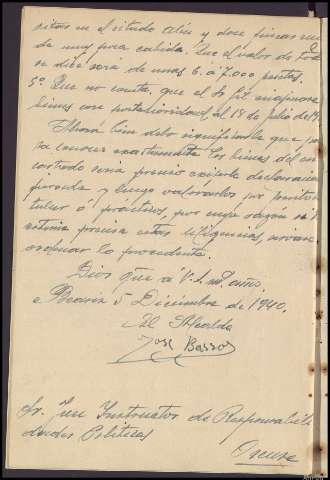 sitas en el citado Atín y doce fincas mas
de muy poca cabida. Que el valor de todo
se dice será de unas 6. a 7.000 pesetas.
5º. Que no consta, que el
bienes con posterioridad, al 18 de julio de 19
Ahora bien debo significarle que p
ra conocer exactamente los bienes del en
cartado seria preciso exijirle declaracion
jurada y luego valorarlos por peritos
tular o prácticos, por cuya razon si V.
estima precisa estas diligencias, servirase
ordenar lo procedente.
Dios gue a V. I. mº. años.
Beariz 5 Diciembre de 1940.
El Alcalde
Jose Bassos
Sr. Juez Instructor de Responsabili
dades Politicas
Orense